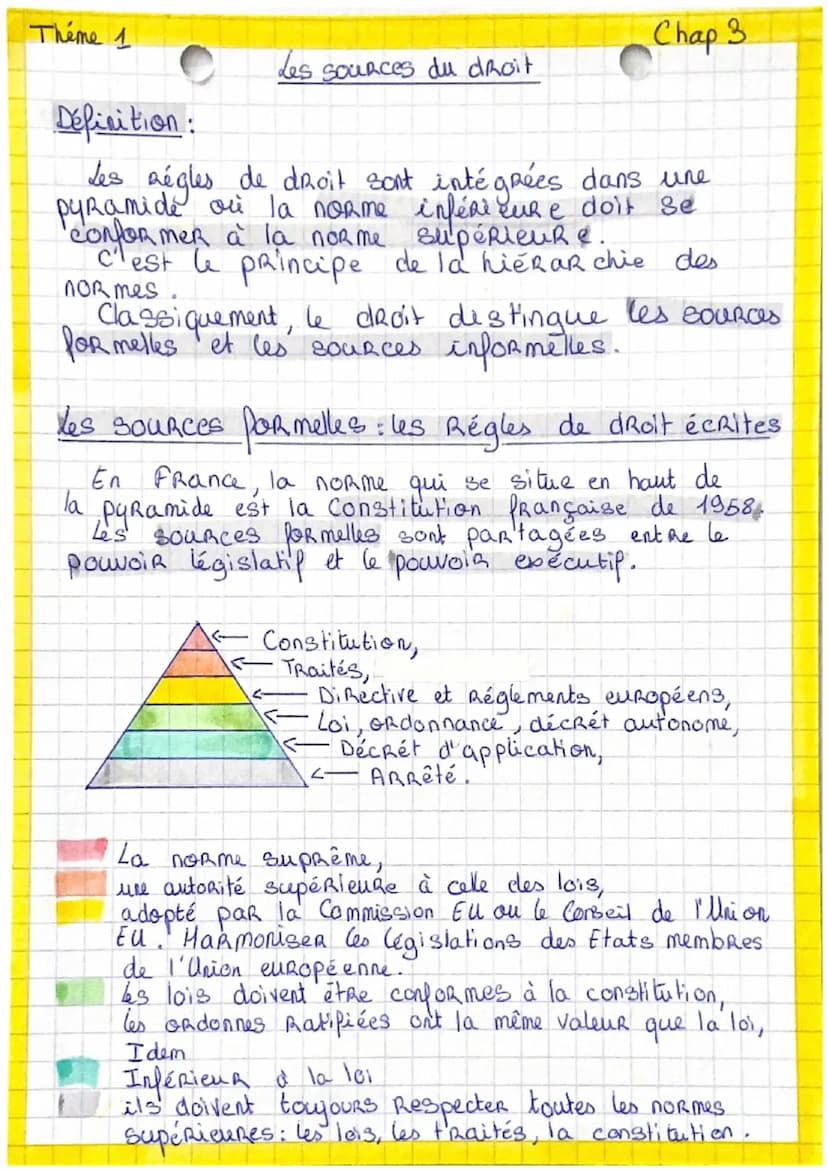 Thème 1
Chap 3
Les sources du droit
Définition :
Les régles de droit sont intégrées dans une
pyramide où la norme inférieure doit se
conformer à la norme supérieure.
C'est le principe de la hiérarchie des
normes.
Classiquement, le droit distingue les sources
formelles et les sources informelles.
Les sources formelles : les Régles de droit écrites
En France, la norme qui se situe en haut de
la pyramide est la Constitution française de 1958.
Les sources formelles sont partagées entre le
pouvoir législatif et le pouvoir exécutif.
Constitution,
Traités,
Directive et Réglements européens,
Loi, ordonnance, décrét autonome,
Décrét d'application,
Arrêté.
La norme suprême,
une autorité supérieure à celle des lois,
adopté par la Commission EU ou le Conseil de l'Union
EU. Harmoniser les législations des Etats membres
de l'Union européenne.
Les lois doivent être conformes à la constitution,
les ordonnes Ratifiées ont la même valeur que la loi,
Idem
Inférieur à la loi
ils doivent toujours Respecter toutes les normes
supérieures : les lois, les traités, la constitution.